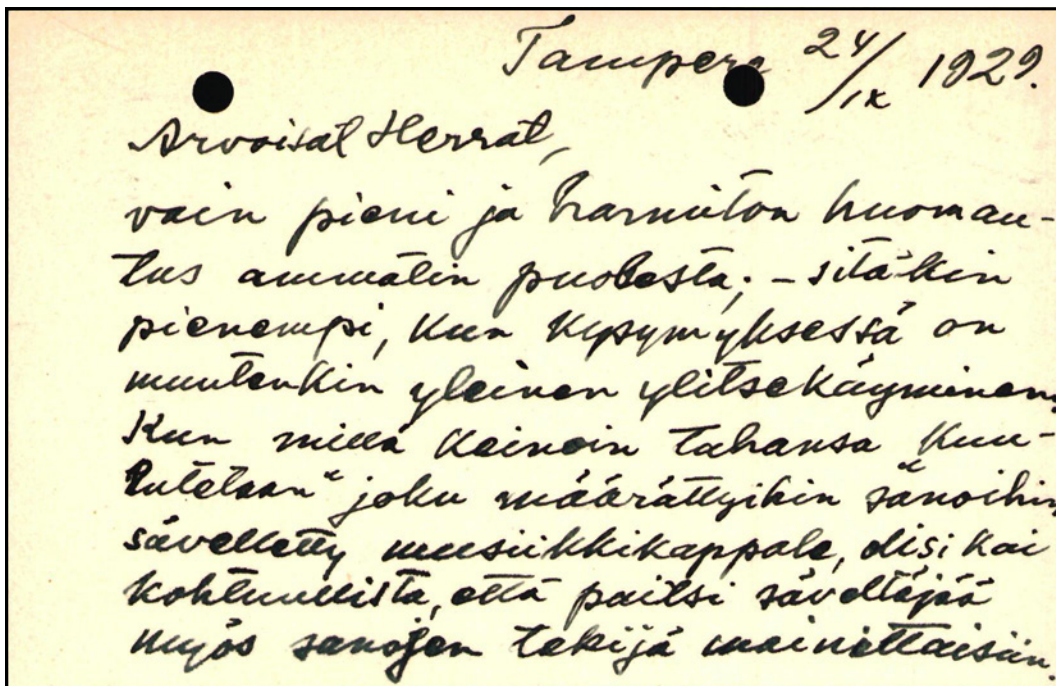 Tampere 24/IX 1929.
Arvoisat Herrat,
vain pieni ja harmiton huomau-
tus ammatin puolesta; – sitäkin
pienempi, kun kysymyksessä on
muutenkin yleinen ylitsekäyminen.
Kun millä keinoin tahansa „kuu-
lutetaan“ joku määrättyihin sanoihin
sävelletty musiikkikappale, olisi kai
kohtuullista, että paitsi säveltäjää
myös sanojen tekijä mainittaisiin.